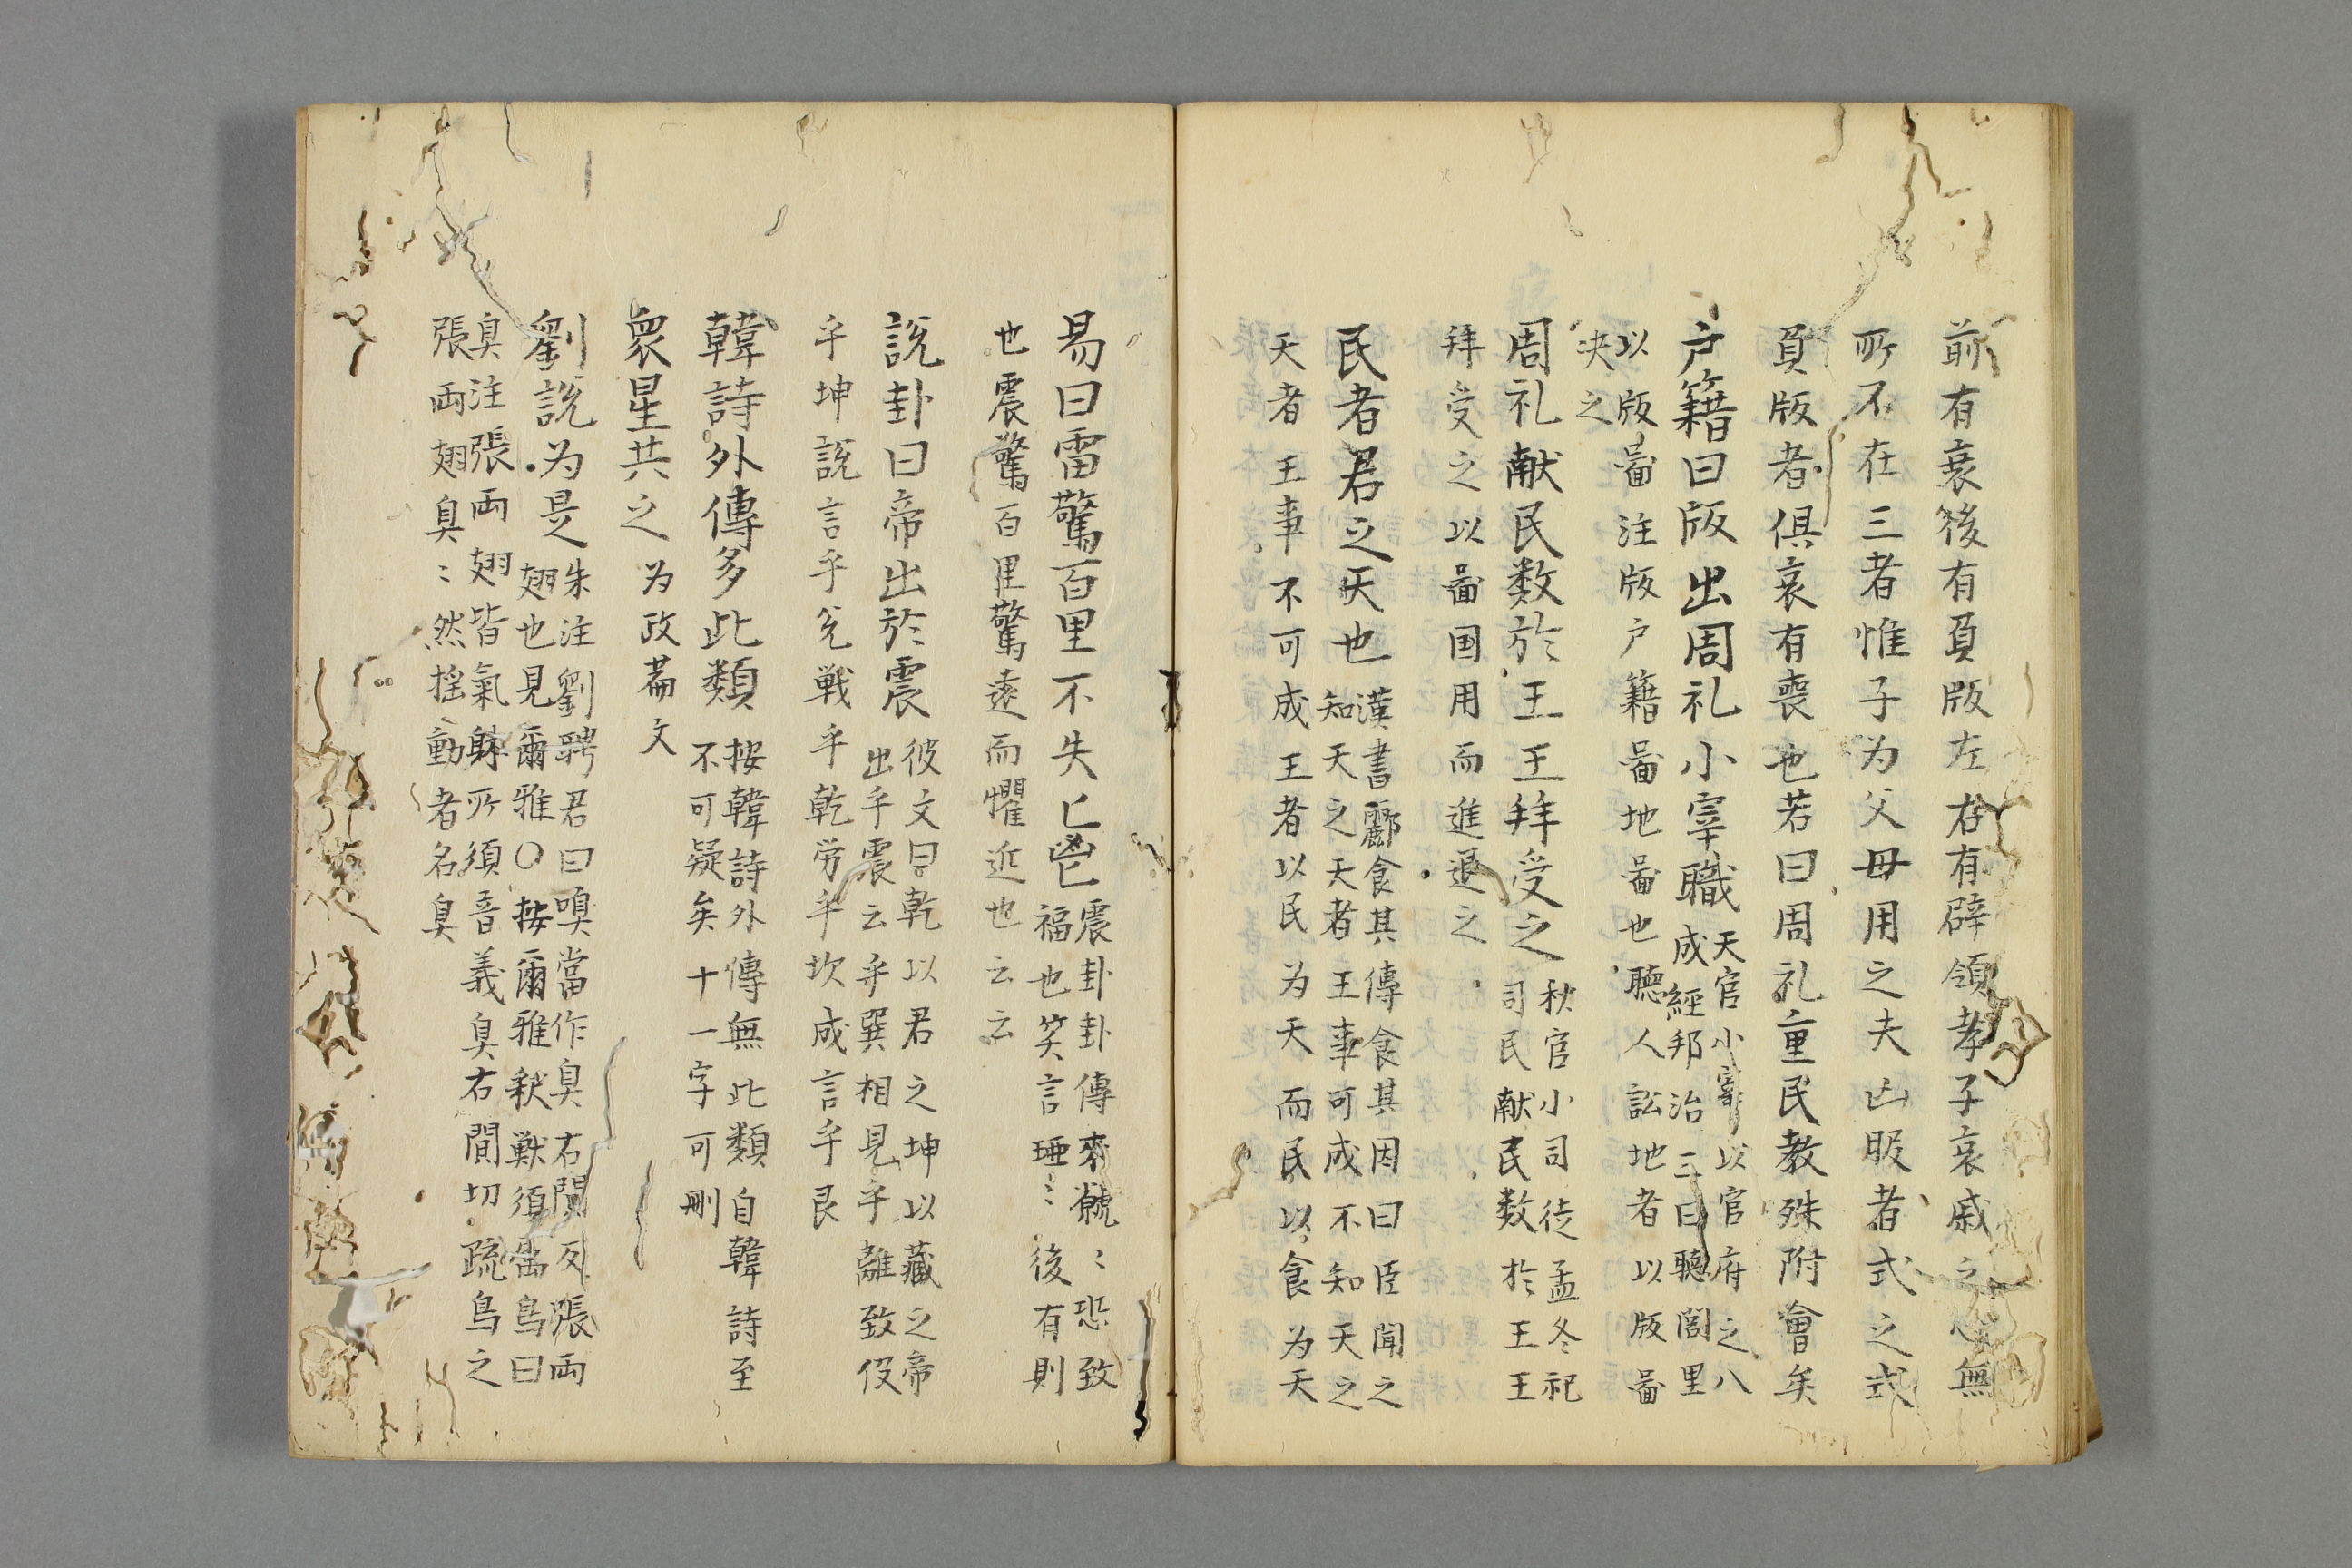 前有衰後有負版左右有辟領孝子哀戚之心無
所不在三者惟子为父母用之夫凶服者式之式
負版者俱哀有喪也若曰周礼重民教殊附會矣
户籍曰版出周礼小宰職
天官小宰以官府之八
成經邦治三曰聽閭里
以版啚注版户籍啚地啚也聽人訟地者以版啚
决之
周礼献民数於王王拜受之
秋官小司徒孟冬祀
司民献民数於王王
拜受之以啚国用而進退之
民者君之天也
漢書酈食其傳食其因曰臣聞之
知天之天者王事可成不知天之
天者王事不可成王者以民为天而民以食为天
易曰雷驚百里不失匕鬯
震卦卦傳來虩〻恐致
福也笑言啞〻後有則
也震驚百里驚遠而懼近也云云
説卦曰帝出於震
彼文曰乾以君之坤以藏之帝
出乎震云乎巽相見乎離致役
乎坤説言乎兊戦乎乾労乎坎成言乎艮
韓詩外傳多此類
按韓詩外傳無此類自韓詩至
不可疑矣十一字可刪
衆星共之
为政萹文
劉説为是
朱注劉聘君曰嗅當作臭右闃反張両
翅也見爾雅〇按爾雅釈獣須屬鳥曰
臭注張両翅皆氣躰所須音義臭右閴切疏鳥之
張両翅臭〻然揺動者名臭